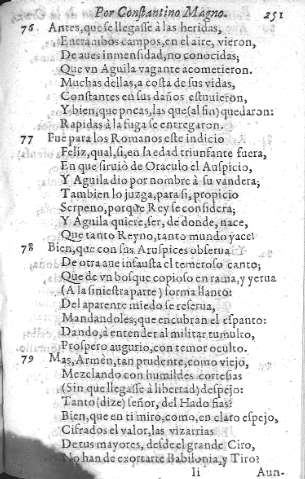 Por Constantino Magno. 251
76 Antes, que se llegasse à las heridas,
Entrambos campos, en el aire, vieron,
De aues inmensidad, no conocidas,
Que vn Aguila vagante acometieron.
Muchas dellas, a costa de sus vidas,
Constantes en sus daños estuuieron,
Y bien, que pocas, las que (al fin) quedaron:
Rapidas à la fuga se entregaron.
77 Fue para los Romanos este indicio
Feliz, qual, si, en la edad triunfante fuera,
En que siruiò de Oraculo el Auspicio,
Y Aguila dio por nombre à su vandera;
Tambien lo juzga, para si, propicio
Serpeno, porque Rey se considera;
Y Aguila quiere, ser, de donde, nace,
Que tanto Reyno, tanto mundo yace.
78 Bien, que con sus Aruspices obserua
De otra aue infausta el temeroso canto;
Que de vn bosque copioso en rama, y yerua
(A la siniestra parte) forma llanto:
Del aparente miedo se reserua,
Mandandoles, que encubran el espanto:
Dando, à entender al militar tumulto,
Prospero augurio, con temor oculto.
79 Mas, Armèn, tan prudente, como viejo,
Mezclando con humildes cortesias
(Sin que llegasse à libertad) despejo:
Tanto (dize) señor, del Hado fias?
Bien, que en ti miro, como, en claro espejo,
Cifrados el valor, las vizarrias
De tus mayores, desde el grande Ciro,
No han de exortarte Babilonia, y Tiro?
Ii Aun-